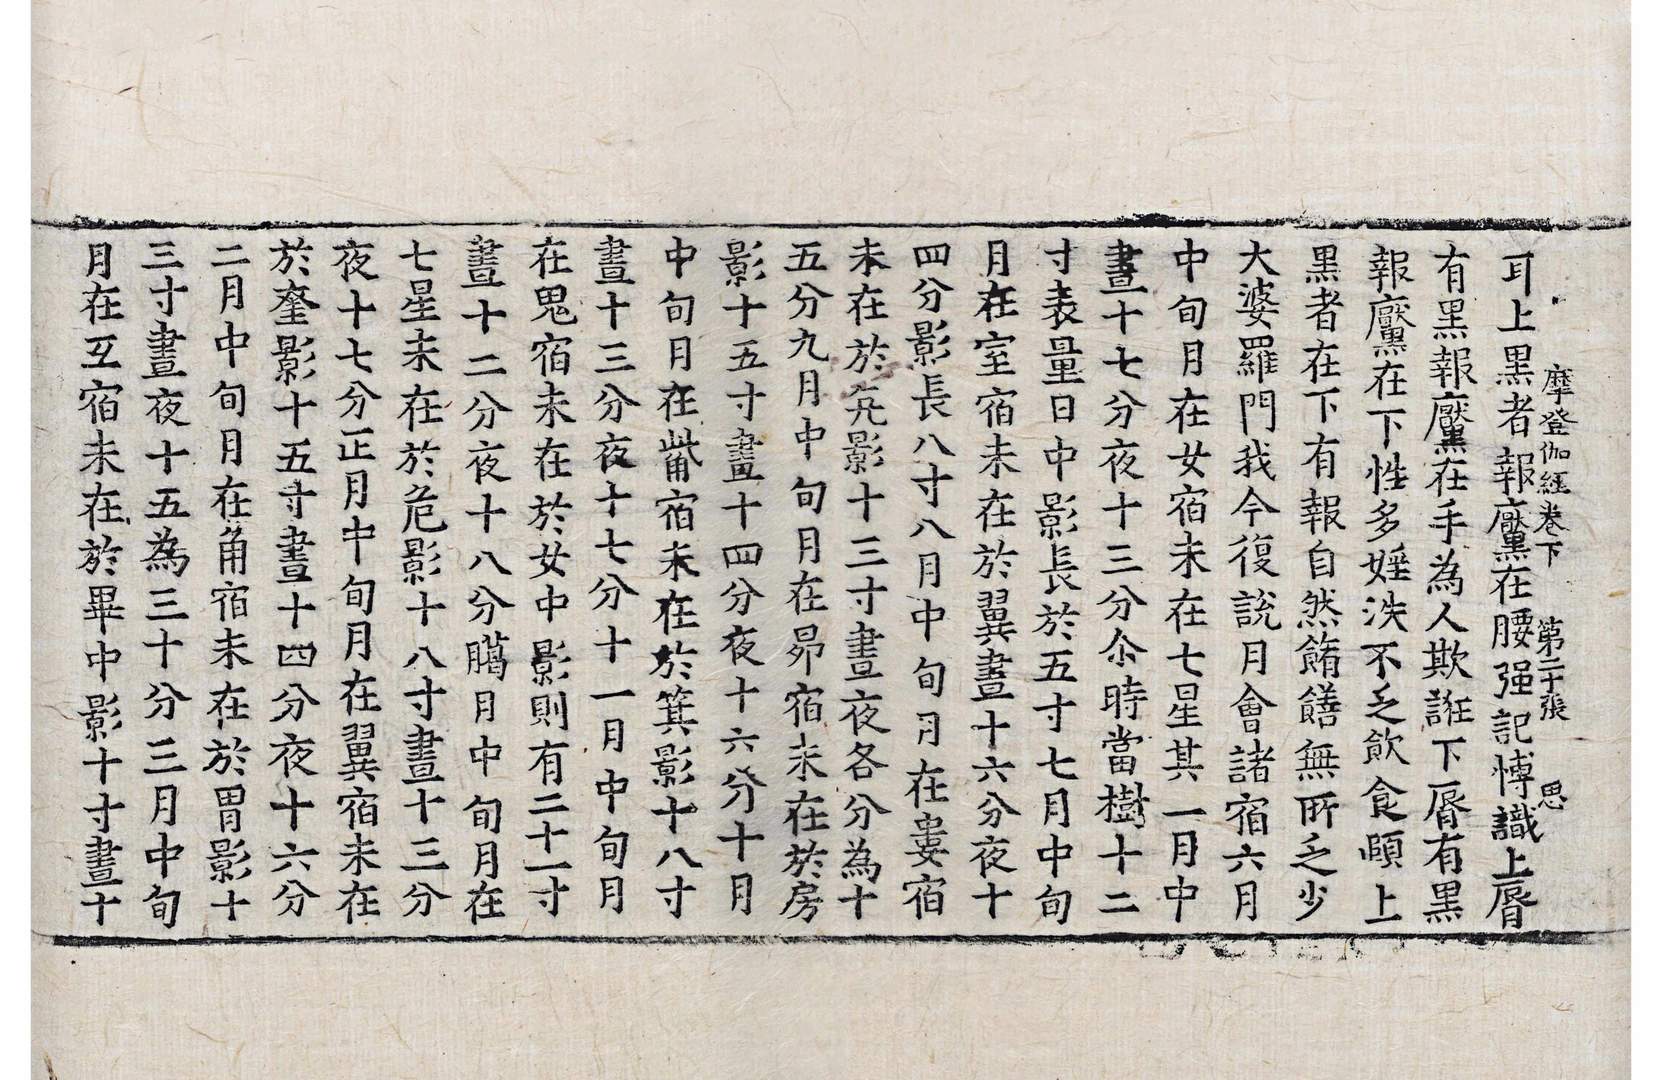 摩登伽經卷下 第二十張 思
耳上黑者報黶在腰强記博識上脣
有黑報黶在手為人欺誑下脣有黑
報黶在下性多婬泆不乏飲食頤上
黑者在下有報自然餚饍無所乏少
大婆羅門我今復說月會諸宿六月
中旬月在女宿未在七星其一月中
晝十七分夜十三分尒時當樹十二
寸表量日中影長於五寸七月中旬
月在室宿未在於翼晝十六分夜十
四分影長八寸八月中旬月在婁宿
未在於亢影十三寸晝夜各分為十
五分九月中旬月在昴宿未在於房
影十五寸晝十四分夜十六分十月
中旬月在觜宿未在於箕影十八寸
晝十三分夜十七分十一月中旬月
在鬼宿未在於女中影則有二十一寸
晝十二分夜十八分臈月中旬月在
七星未在於危影十八寸晝十三分
夜十七分正月中旬月在翼宿未在
於奎影十五寸晝十四分夜十六分
二月中旬月在角宿未在於胃影十
三寸晝夜十五為三十分三月中旬
月在互宿未在於畢中影十寸晝十